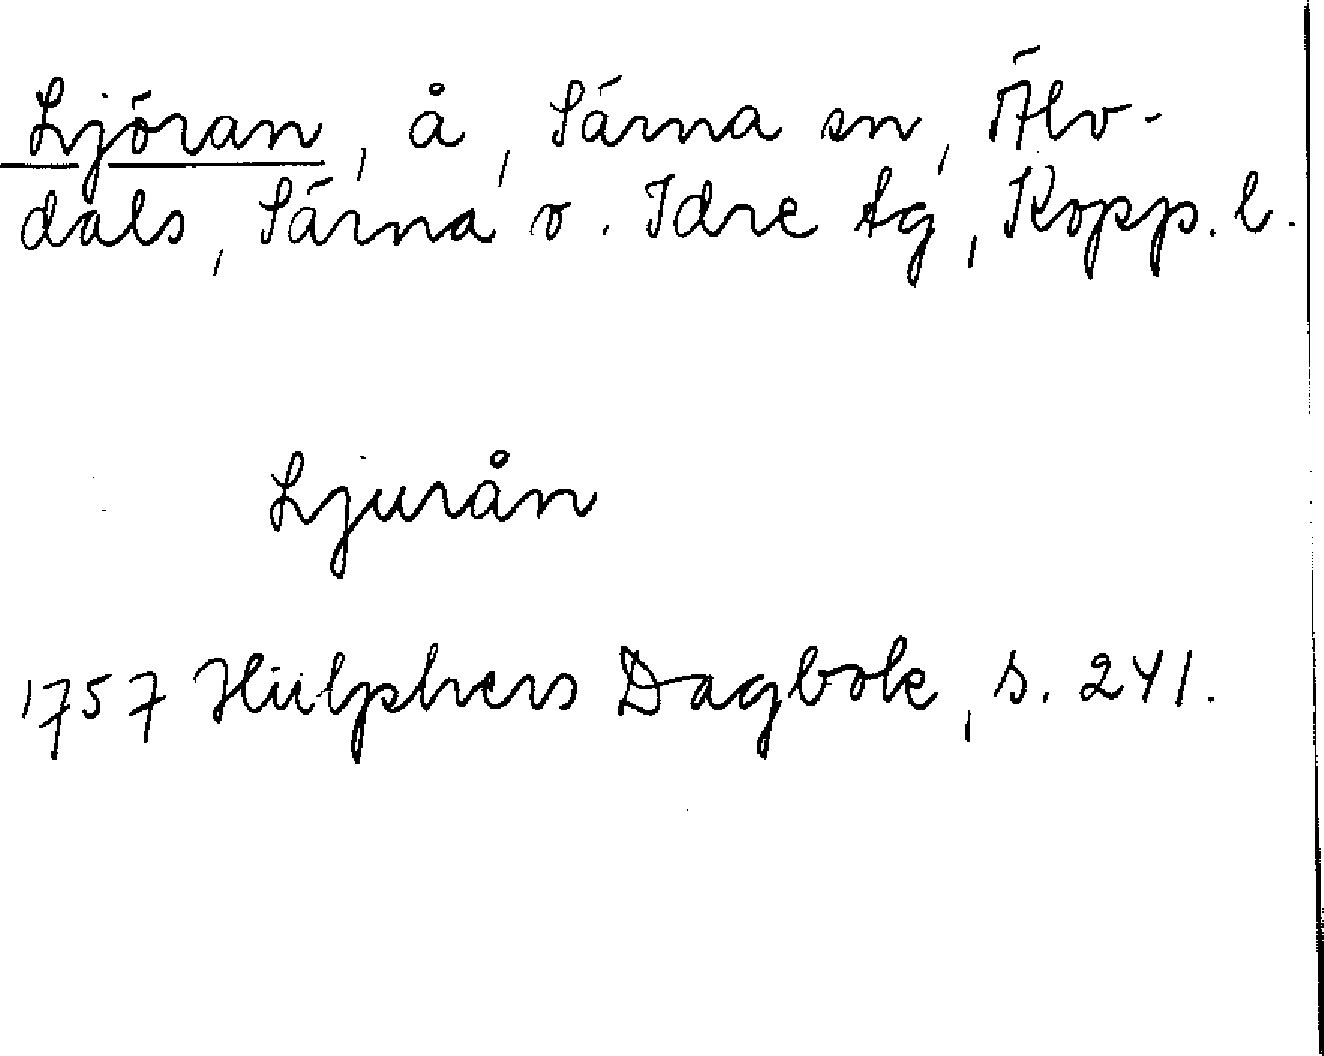 Ljöran, å, Särna sn, Älv-
dals, Särna o. Idre tg, Kopp. l.
Ljurån
1757 Hülphers Dagbok, s. 241.